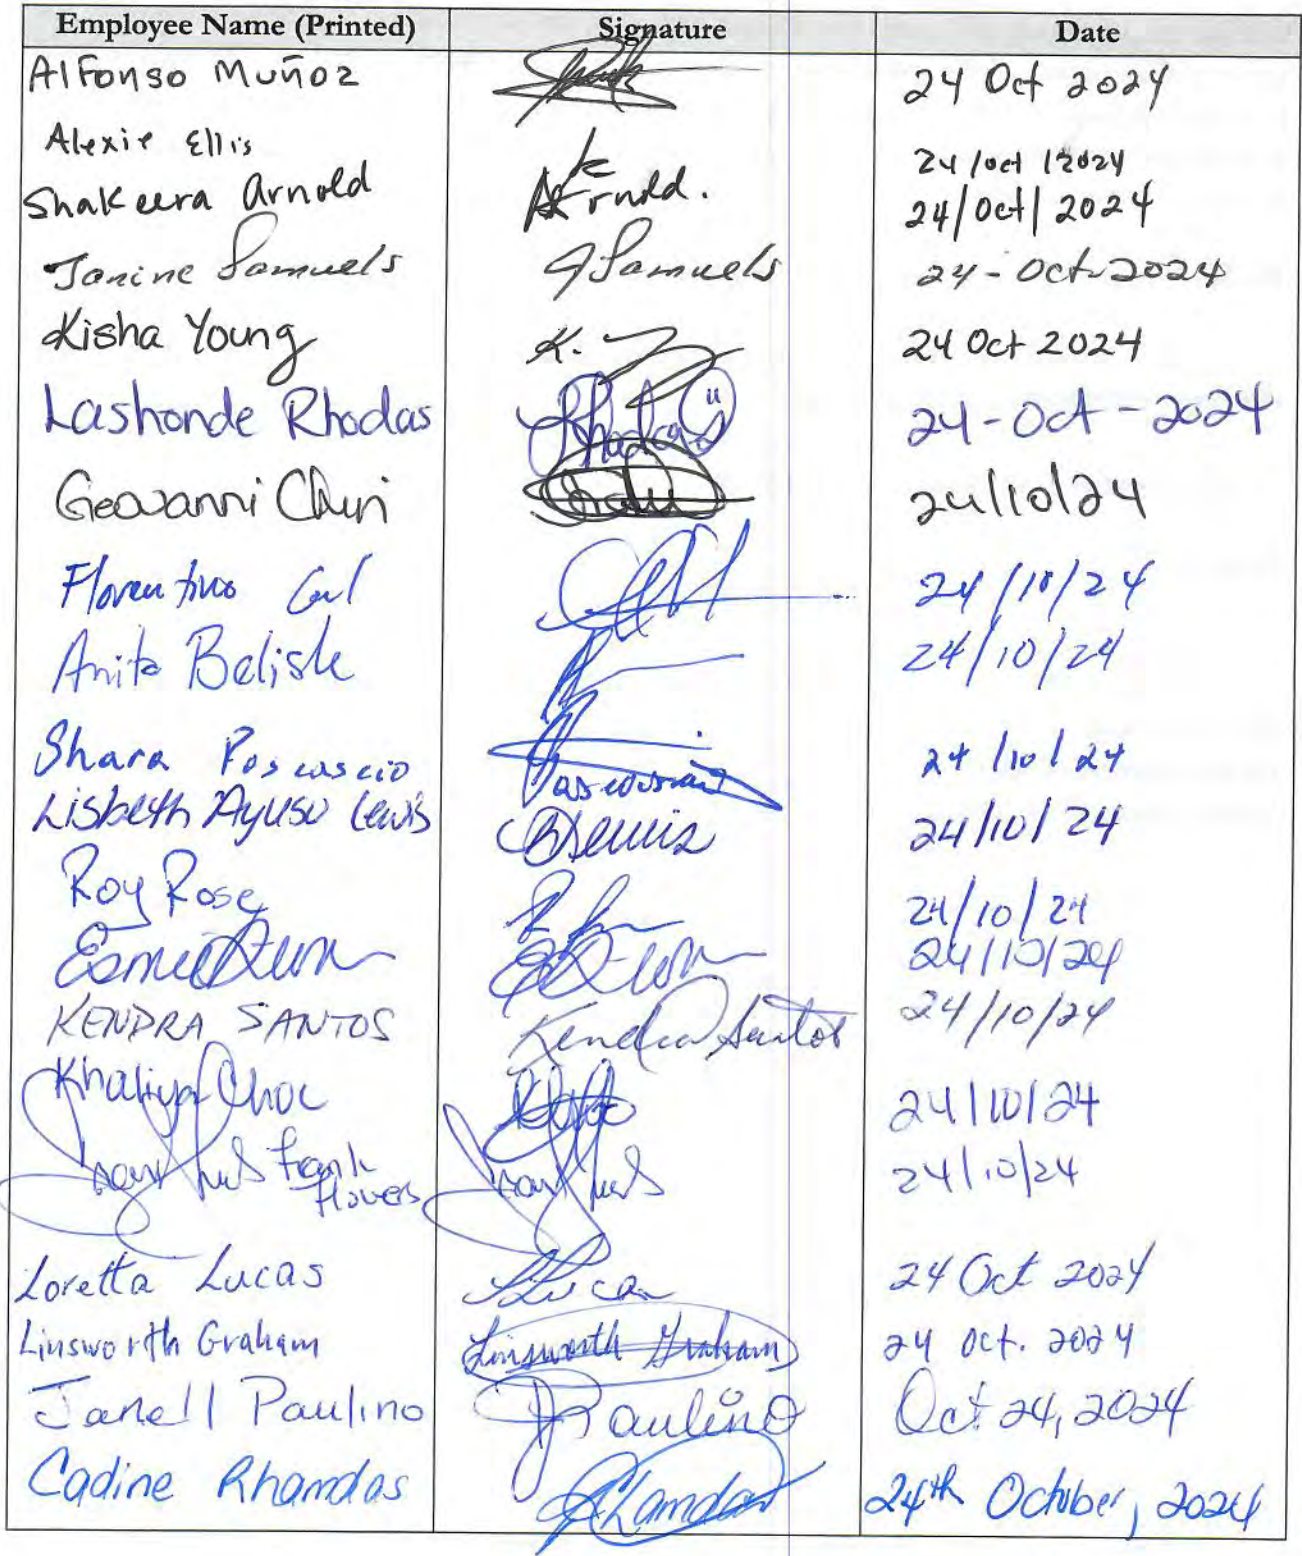 Employee Name (Printed) Signature Date
Alfonso Muñoz 24 Oct 2024
Alexie Ellis 24/oct/2024
Shakeera Arnold Arnold. 24/Oct/2024
Janine Samuels JSamuels 24-Oct-2024
Kisha Young K. 24 Oct 2024
Lashonde Rhodas Rhodas 24-Oct-2024
Geovanni Chiri 24/10/24
Florentino 24/10/24
Anita Belisle 24/10/24
Shara 24/10/24
Lisbeth Ayuso Lewis 24/10/24
Roy Rose 24/10/24
24/10/24
KENDRA SANTOS Kendra Santos 24/10/24
Khaliya Choc 24/10/24
Frank 24/10/24
Flowers
Loretta Lucas LLucas 24 Oct 2024
Linsworth Graham Linsworth Graham 24 Oct. 2024
Janell Paulino JPaulino Oct 24, 2024
Cadine Rhamdas Rhamdas 24th October, 2024